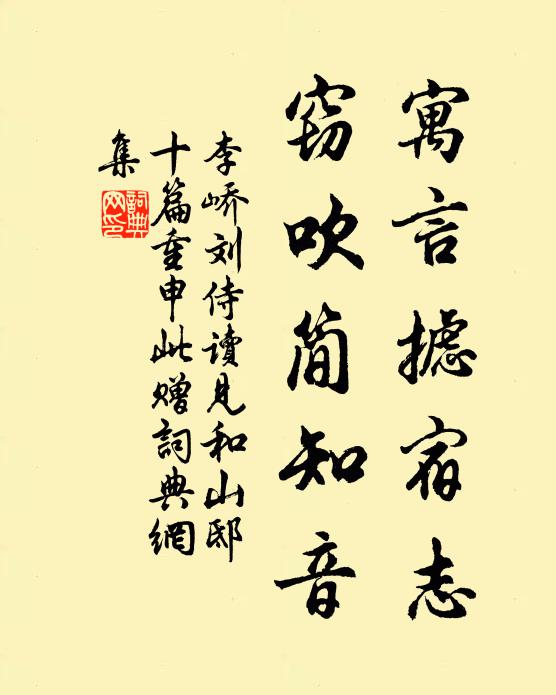 寓言摅宿志
窃吹简知音
李峤刘侍讀見和山邸
十篇重申此贈詞典網
集
詞典
网印